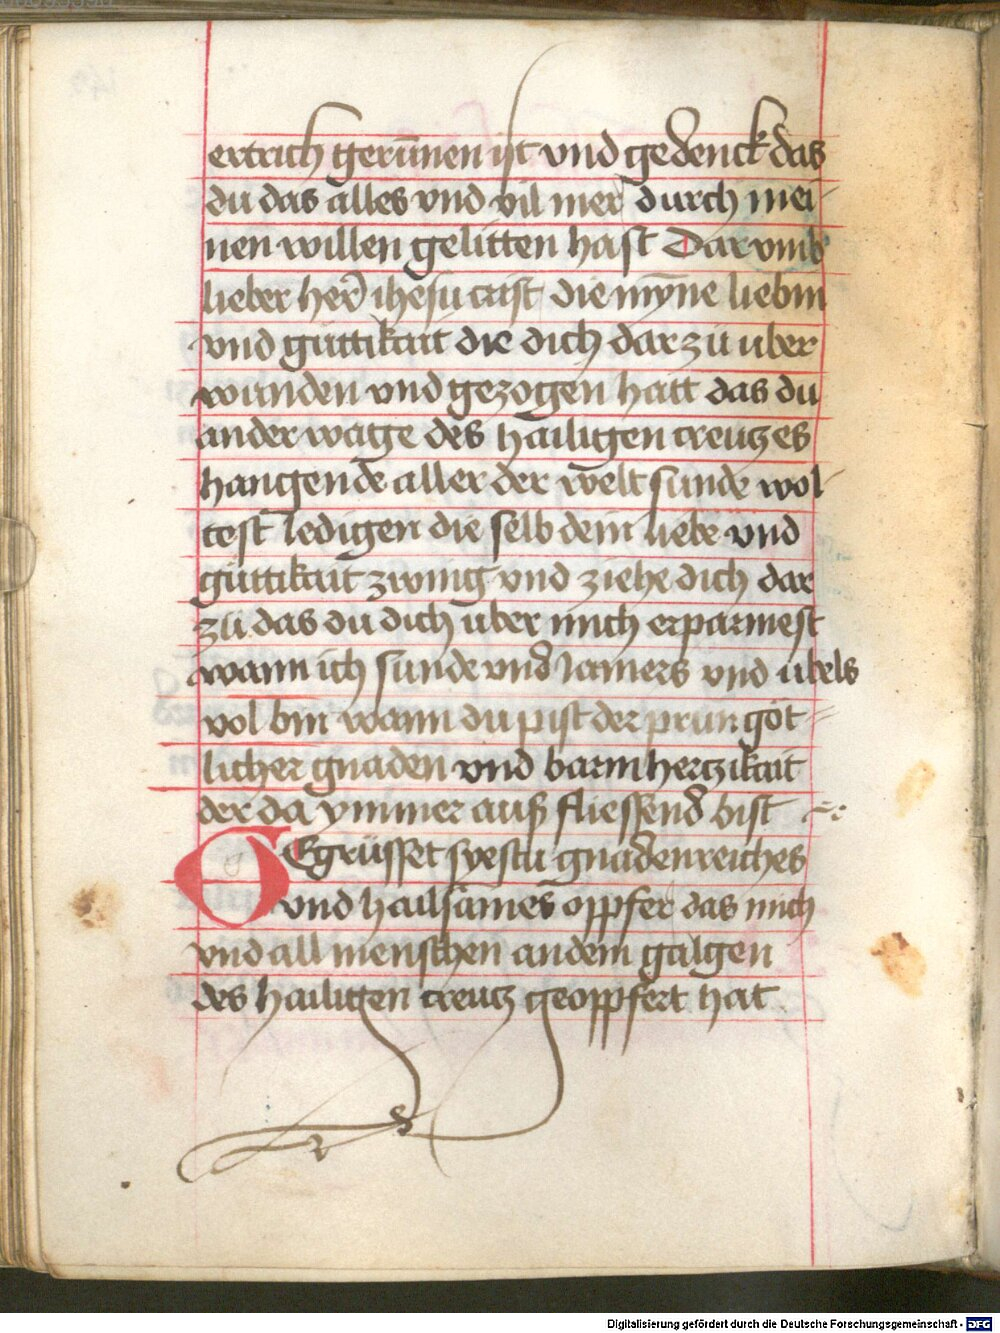 ertrich gerūnen ist vnd gedenck das
du das alles vnd vil mer durch mei-
nen willen gelitten hast Dar vmb
lieber her ihesu crist die mȳne liebin
vnd guttikait die dich dar zü uber
wunden vnd gezogen hatt das du
an der wage des hailigen creutzes
hangende aller der welt sunde wol-
test ledigen die selb dein liebe vnd
guttikait zwing vnd ziehe dich dar
zü das du dich uber mich erparmest
wann ich sunde vnd Jamers vnd übels
vol bin wann du pist der prün göt-
licher gnaden vnd barmhertzikait
der da ymmer auß fliessend bist
GEgrüsset syestu gnadenreiches
vnd hailsames oppfer das mich
vnd all menschen an dem galgen
des hailigen creutz geoppfert hat
Digitalisierung gefördert durch die Deutsche Forschungsgemeinschaft - DFG